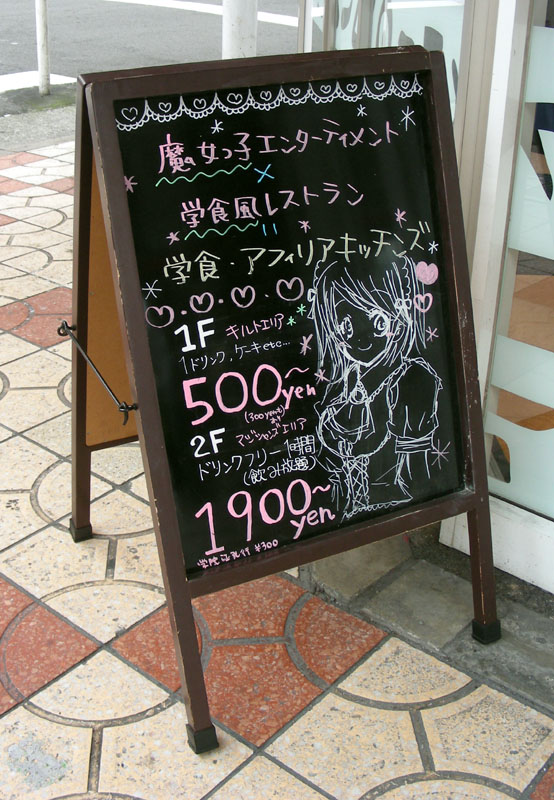 魔女っ子エンターティメント
学食風レストラン
学食・アフィリアキッチンズ
1F キルトエリア
1ドリンク、ケーキetc...
500〜yen
2F マジシャンズエリア
ドリンクフリー 1時間
(飲み放題)
1900〜yen
¥300